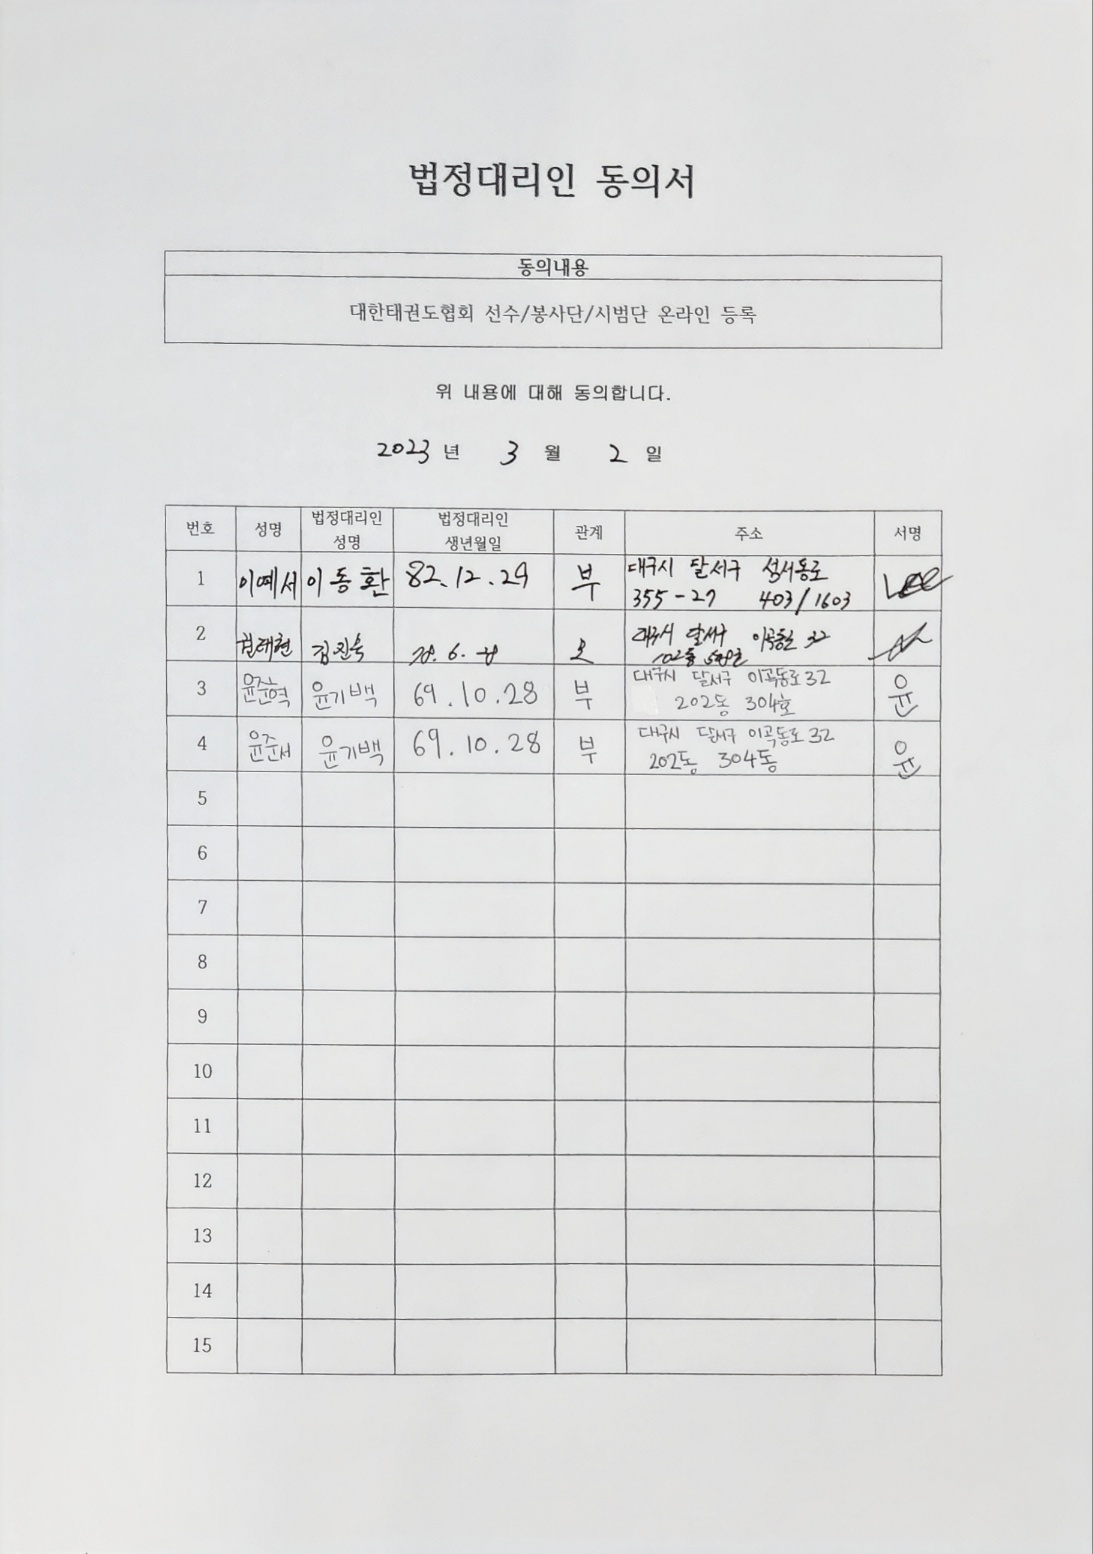 법정대리인 동의서
동의내용
대한태권도협회 선수/봉사단/시범단 온라인 등록
위 내용에 대해 동의합니다.
2023 년 3 월 2 일
번호 성명 법정대리인 성명 법정대리인 생년월일 관계 주소 서명
1 이예서 이동환 82.12.29 부 대구시 달서구 성서동로
355-27 403/1603
2 모 대구시 달서구 이곡동로 32
3 윤준혁 윤기백 69.10.28 부 대구시 달서구 이곡동로 32 윤
202동 304호
4 윤준서 윤기백 69.10.28 부 대구시 달서구 이곡동로 32 윤
202동 304동
5
6
7
8
9
10
11
12
13
14
15